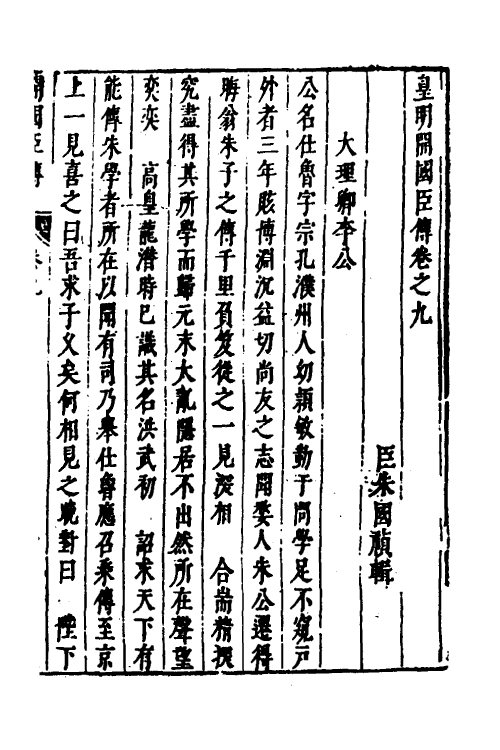 皇明開國臣傳卷之九
臣朱國禎輯
大理卿李公
公名仕魯字宗孔濮州人幼穎敏勤于問學足不窺戶
外者三年賅博淵沉益切尚友之志聞婺人朱公遷得
晦翁朱子之傳千里負笈從之一見深相 合耑精探
究盡得其所學而歸元末大亂隱居不出然所在聲望
奕奕 高皇龍潛時已識其名洪武初 詔求天下有
能傳朱學者所在以聞有司乃舉仕魯應召乘傳至京
上一見喜之曰吾求子久矣何相見之晚對曰 陛下
開國臣傳 卷九